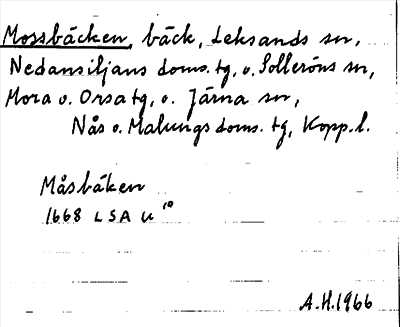 Mossbäcken, bäck, Leksands sn,
Nedansiljans doms. tg, o. Solleröns sn,
Mora o. Orsa tg, o. Järna sn,
Nås o. Malungs doms. tg, Kopp. l.
Måsbäken
1668 LSA U 10
A.H. 1966